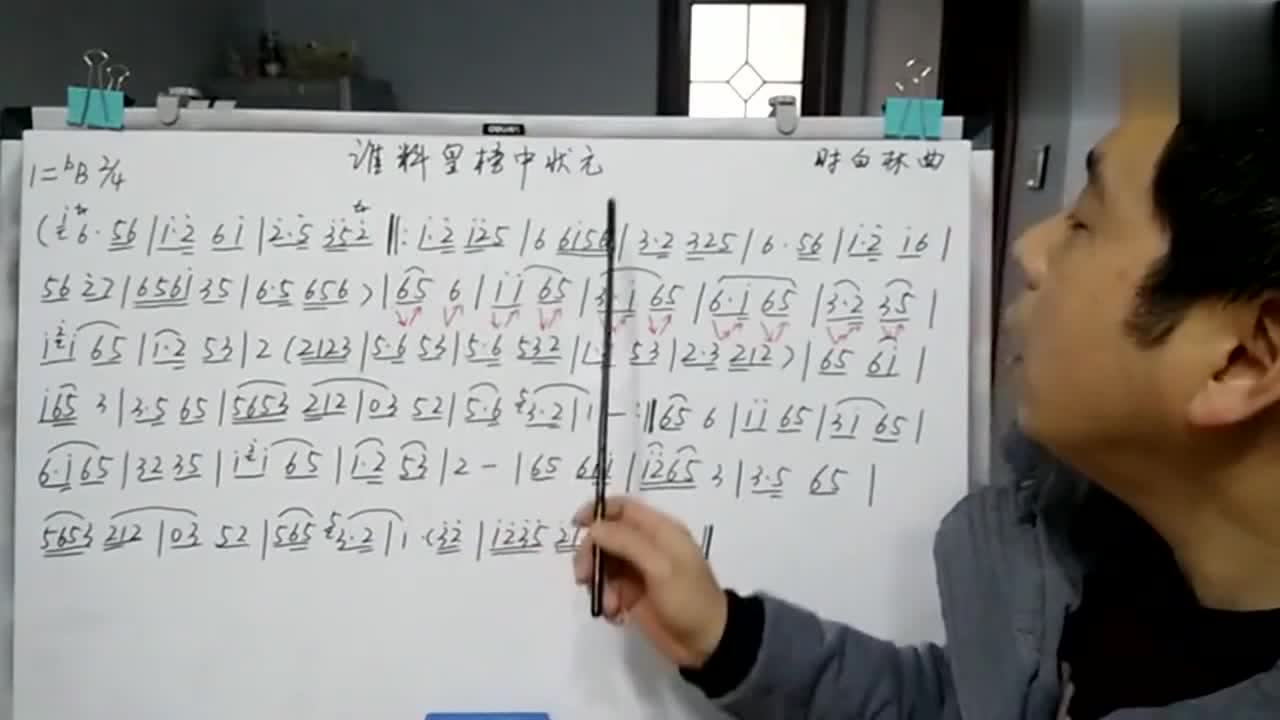 deli
谁料皇榜中状元
时白林曲
1=ᵇB 2/4
(6· 56 | i·2̇ 6i | 2̇·5 3̇52̇ ‖: i·2̇ i̇2̇5 | 6 6i56 | 3·2 325 | 6· 56 | i·2̇ i6 |
56 2̇7 | 656i 35 | 6·5 656 ) | 65 6 | ii 65 | 3·i 65 | 6·i 65 | 3·2 35 |
i2̇i 65 | 1·2 53 | 2 (2123 | 5·6 53 | 5·6 532 | 53 | 2·3 212 ) | 65 6i |
i65 3 | 3·5 65 | 5653 212 | 03 52 | 5·6 3·2 | 1 — :‖ 65 6 | ii 65 | 3i 65 |
6·i 65 | 32 35 | i2̇i 65 | 1·2 53 | 2 — | 65 | i2̇65 3 | 3·5 65 |
5653 212 | 03 52 | 565 3·2 | 1· (3̇2̇ | i2̇3̇5 ‖